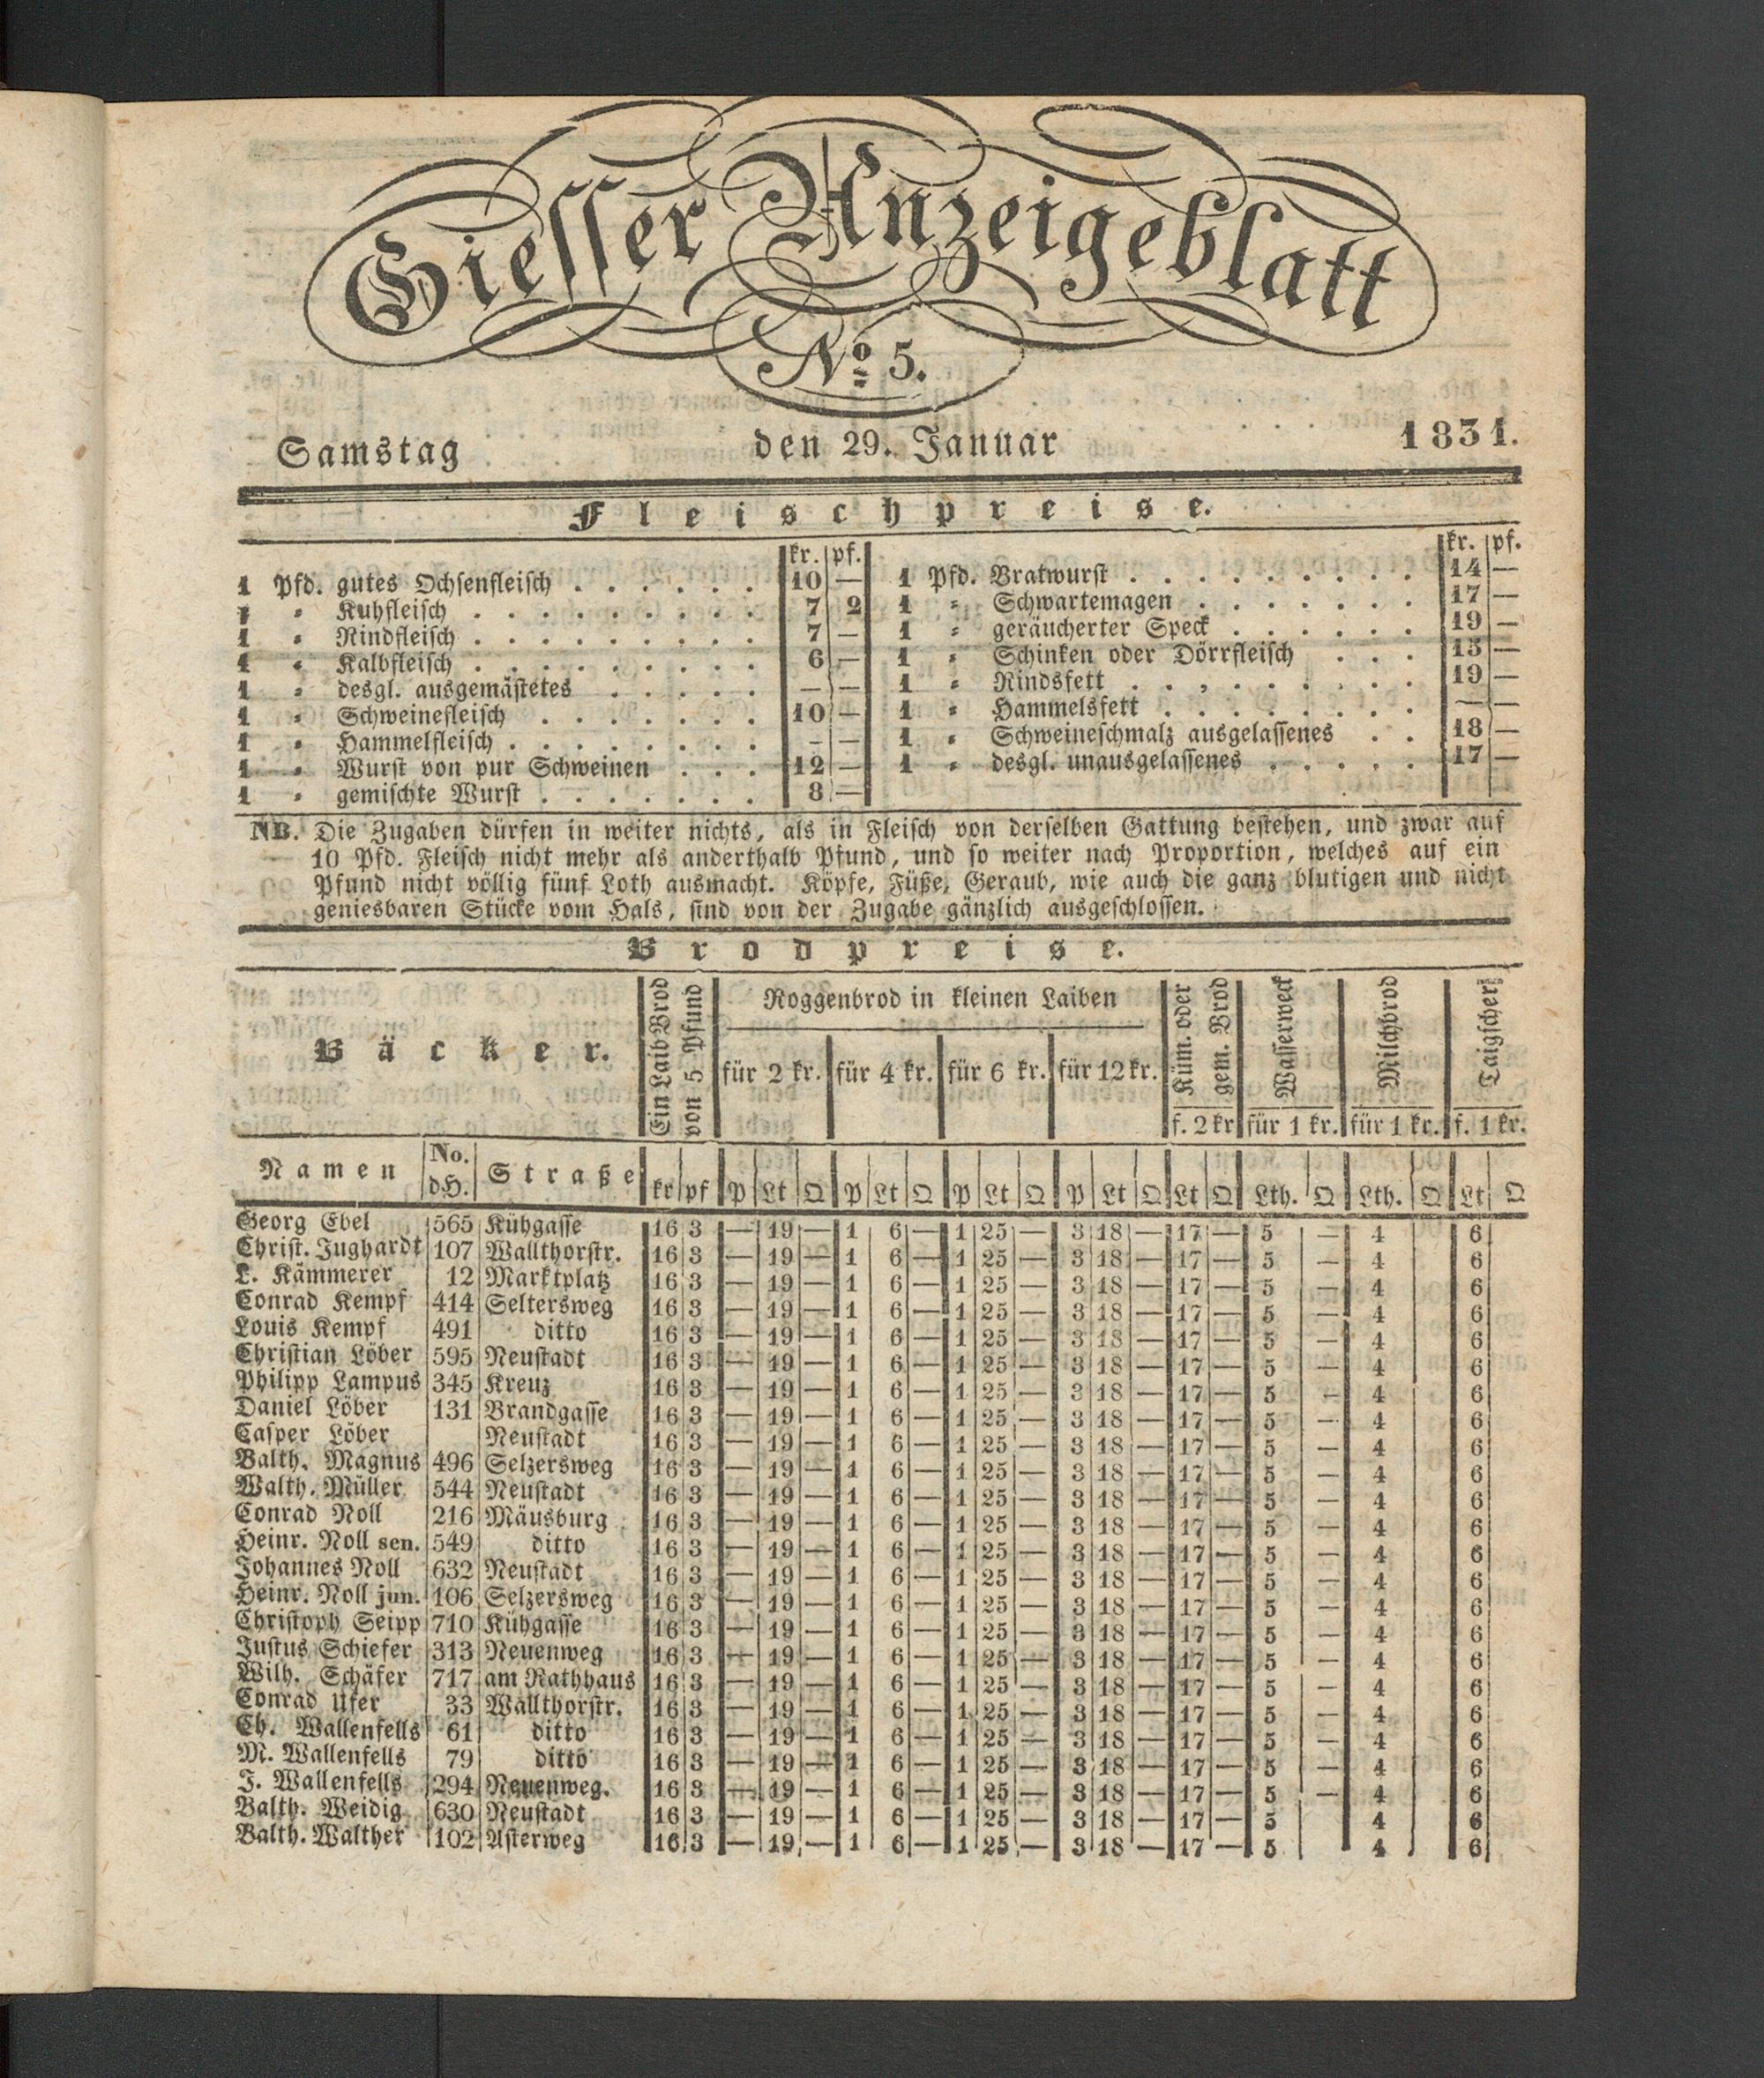 Giesser Anzeigeblatt
No. 5.
Samstag den 29. Januar 1831.
Fleischpreise.
kr. pf.
1 Pfd. gutes Ochsenfleisch . . . . . . 10 —
1 = Kuhfleisch . . . . . . . . . . 7 2
1 = Rindfleisch . . . . . . . . . . 7 —
1 = Kalbfleisch . . . . . . . . . . 6 —
1 = desgl. ausgemästetes . . . . . — —
1 = Schweinefleisch . . . . . . . 10 —
1 = Hammelfleisch . . . . . . . . — —
1 = Wurst von pur Schweinen . . . 12 —
1 = gemischte Wurst . . . . . . . 8 —
kr. pf.
1 Pfd. Bratwurst . . . . . . . . . 14 —
1 = Schwartemagen . . . . . . . 17 —
1 = geräucherter Speck . . . . . . 19 —
1 = Schinken oder Dörrfleisch . . . 15 —
1 = Rindsfett . . . . . . . . . 19 —
1 = Hammelsfett . . . . . . . . — —
1 = Schweineschmalz ausgelassenes . . 18 —
1 = desgl. unausgelassenes . . . . . 17 —
NB. Die Zugaben dürfen in weiter nichts, als in Fleisch von derselben Gattung bestehen, und zwar auf
10 Pfd. Fleisch nicht mehr als anderthalb Pfund, und so weiter nach Proportion, welches auf ein
Pfund nicht völlig fünf Loth ausmacht. Köpfe, Füße, Geraub, wie auch die ganz blutigen und nicht
geniesbaren Stücke vom Hals, sind von der Zugabe gänzlich ausgeschlossen.
Brodpreise.
Bäcker.
Ein Laib Brod
von 5 Pfund
Roggenbrod in kleinen Laiben
für 2 kr. für 4 kr. für 6 kr. für 12 kr.
Küm. oder
gem. Brod
f. 2 kr
Wasserweck
für 1 kr.
Milchbrod
für 1 kr.
Taigscherz
f. 1 kr.
Namen No. d.H. Straße kr pf P Lt Q P Lt Q P Lt Q P Lt Q Lt Q Lth. Q Lth. Q Lt Q
Georg Ebel 565 Kühgasse 16 3 — 19 — 1 6 — 1 25 — 3 18 — 17 — 5 — 4 6
Christ. Jughardt 107 Wallthorstr. 16 3 — 19 — 1 6 — 1 25 — 3 18 — 17 — 5 — 4 6
L. Kämmerer 12 Marktplatz 16 3 — 19 — 1 6 — 1 25 — 3 18 — 17 — 5 — 4 6
Conrad Kempf 414 Seltersweg 16 3 — 19 — 1 6 — 1 25 — 3 18 — 17 — 5 — 4 6
Louis Kempf 491 ditto 16 3 — 19 — 1 6 — 1 25 — 3 18 — 17 — 5 — 4 6
Christian Löber 595 Neustadt 16 3 — 19 — 1 6 — 1 25 — 3 18 — 17 — 5 — 4 6
Philipp Lampus 345 Kreuz 16 3 — 19 — 1 6 — 1 25 — 3 18 — 17 — 5 — 4 6
Daniel Löber 131 Brandgasse 16 3 — 19 — 1 6 — 1 25 — 3 18 — 17 — 5 — 4 6
Casper Löber Neustadt 16 3 — 19 — 1 6 — 1 25 — 3 18 — 17 — 5 — 4 6
Balth. Magnus 496 Selzersweg 16 3 — 19 — 1 6 — 1 25 — 3 18 — 17 — 5 — 4 6
Walth. Müller 544 Neustadt 16 3 — 19 — 1 6 — 1 25 — 3 18 — 17 — 5 — 4 6
Conrad Noll 216 Mäusburg 16 3 — 19 — 1 6 — 1 25 — 3 18 — 17 — 5 — 4 6
Heinr. Noll sen. 549 ditto 16 3 — 19 — 1 6 — 1 25 — 3 18 — 17 — 5 — 4 6
Johannes Noll 632 Neustadt 16 3 — 19 — 1 6 — 1 25 — 3 18 — 17 — 5 — 4 6
Heinr. Noll jun. 106 Selzersweg 16 3 — 19 — 1 6 — 1 25 — 3 18 — 17 — 5 — 4 6
Christoph Seipp 710 Kühgasse 16 3 — 19 — 1 6 — 1 25 — 3 18 — 17 — 5 — 4 6
Justus Schiefer 313 Neuenweg 16 3 — 19 — 1 6 — 1 25 — 3 18 — 17 — 5 — 4 6
Wilh. Schäfer 717 am Rathhaus 16 3 — 19 — 1 6 — 1 25 — 3 18 — 17 — 5 — 4 6
Conrad Ufer 33 Wallthorstr. 16 3 — 19 — 1 6 — 1 25 — 3 18 — 17 — 5 — 4 6
Ch. Wallenfells 61 ditto 16 3 — 19 — 1 6 — 1 25 — 3 18 — 17 — 5 — 4 6
M. Wallenfells 79 ditto 16 3 — 19 — 1 6 — 1 25 — 3 18 — 17 — 5 — 4 6
J. Wallenfells 294 Neuenweg. 16 3 — 19 — 1 6 — 1 25 — 3 18 — 17 — 5 — 4 6
Balth. Weidig 630 Neustadt 16 3 — 19 — 1 6 — 1 25 — 3 18 — 17 — 5 4 6
Balth. Walther 102 Asterweg 16 3 — 19 — 1 6 — 1 25 — 3 18 — 17 — 5 4 6